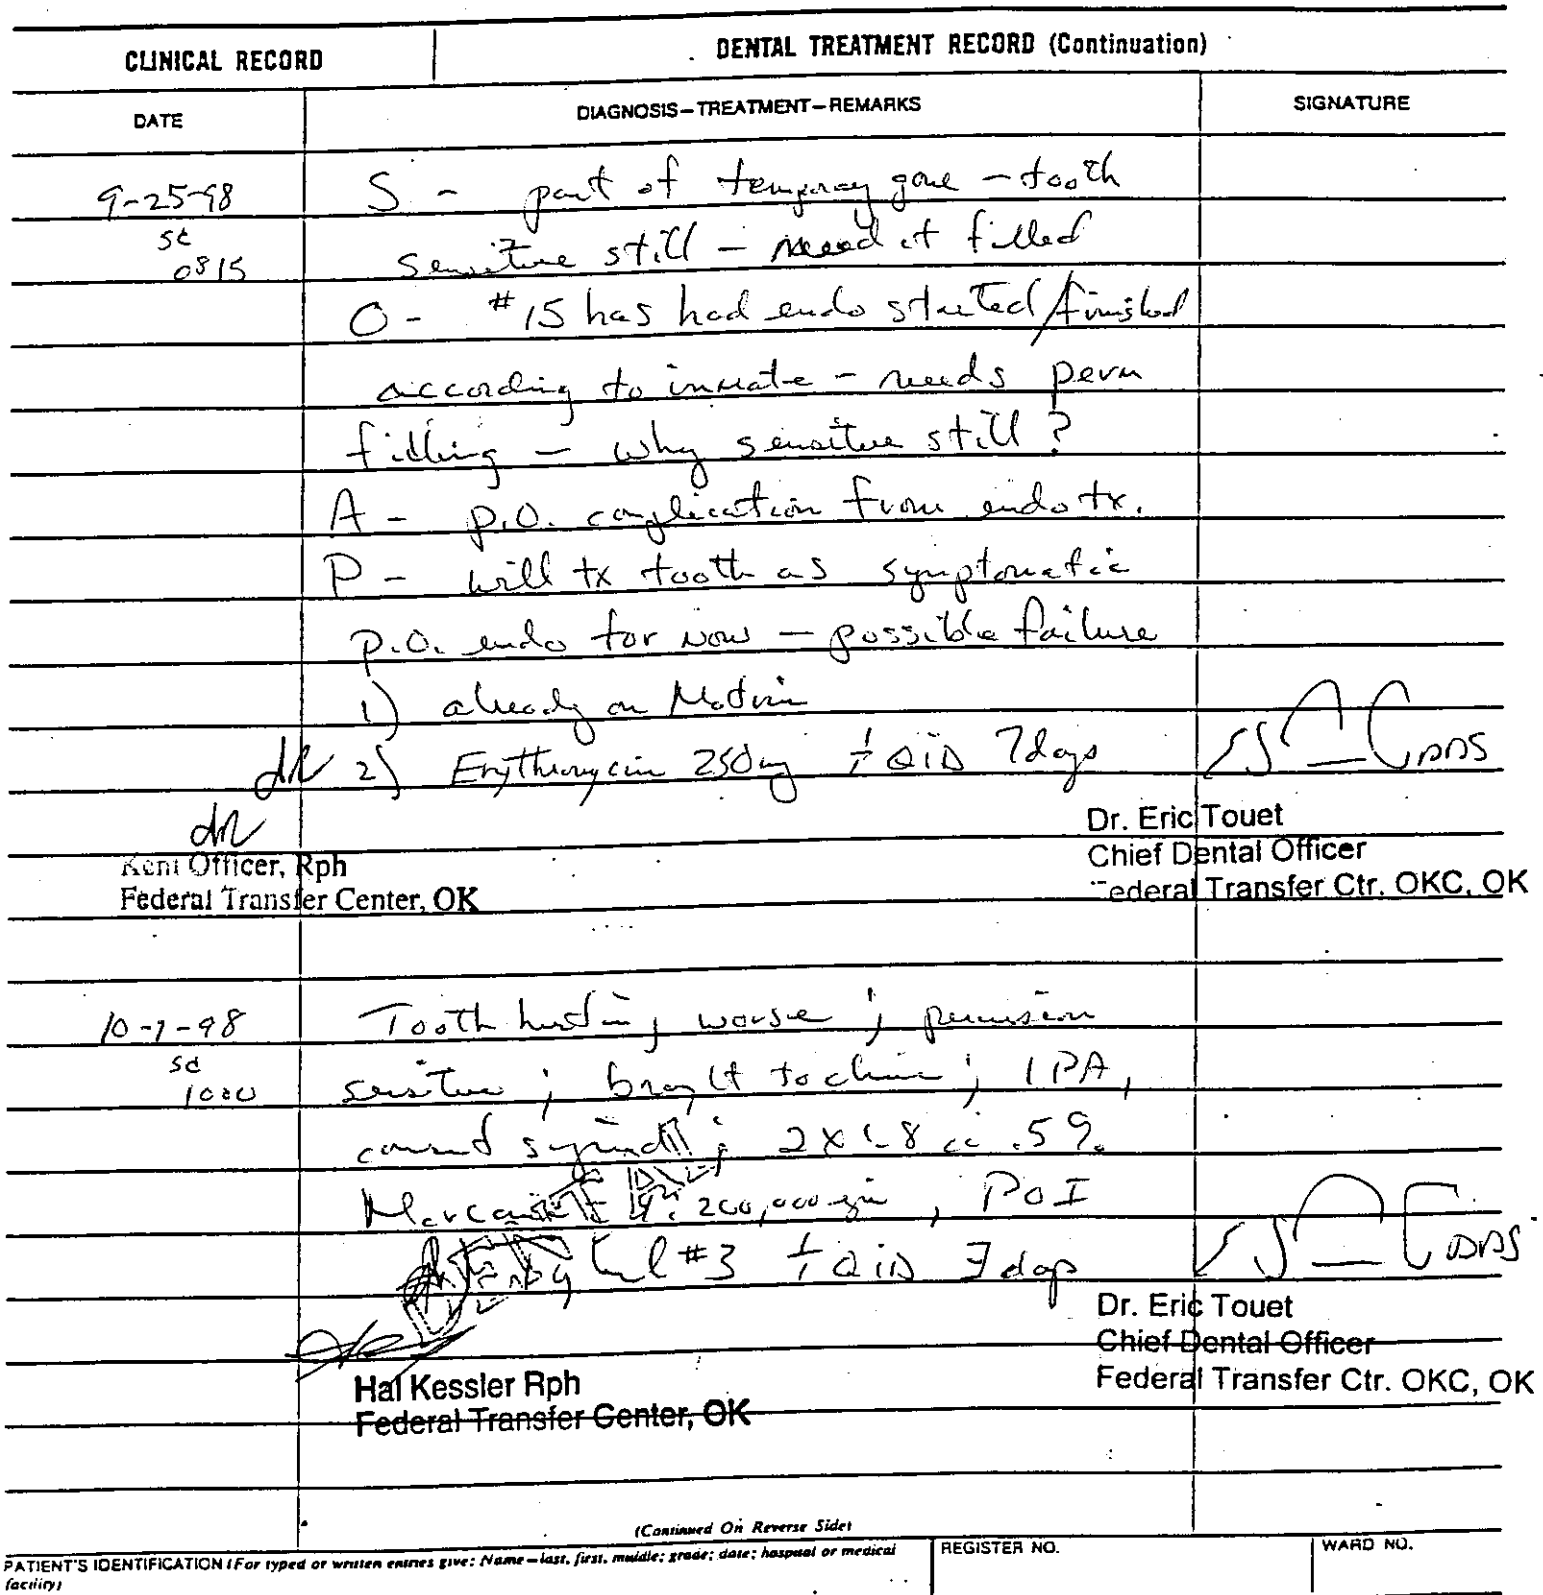 CLINICAL RECORD
DENTAL TREATMENT RECORD (Continuation)
DATE
DIAGNOSIS-TREATMENT-REMARKS
SIGNATURE
9-25-98
0815
S - part of temporary gone - tooth
sensitive still - need it filled
O - #15 has had endo started/finished
according to inmate - needs perm
filling - why sensitive still ?
A - p.o. complication from endo tx.
P - will tx tooth as symptomatic
p.o. endo for now - possible failure
1) already on Motrin
2) Erythromycin 250mg QID 7 days
DDS
Dr. Eric Touet
Chief Dental Officer
Federal Transfer Ctr. OKC, OK
Kent Officer, Rph
Federal Transfer Center, OK
10-7-98
sd
1000
Tooth hurting worse ; percussion
sensitive ; brought to clinic ; 1 PA,
2 x 1.8 cc .5%
1:200,000 epi , POI
#3 QID 7 days
DDS
Dr. Eric Touet
Chief Dental Officer
Federal Transfer Ctr. OKC, OK
Hal Kessler Rph
Federal Transfer Center, OK
(Continued On Reverse Side)
PATIENT'S IDENTIFICATION (For typed or written entries give: Name-last, first, middle; grade; date; hospital or medical
facility)
REGISTER NO.
WARD NO.